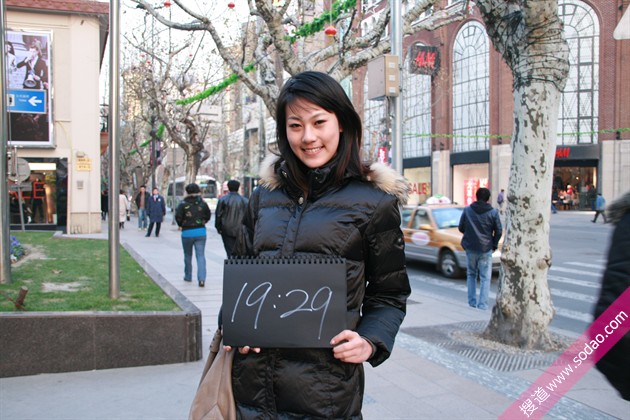 19:29
搜道 www.sodao.com